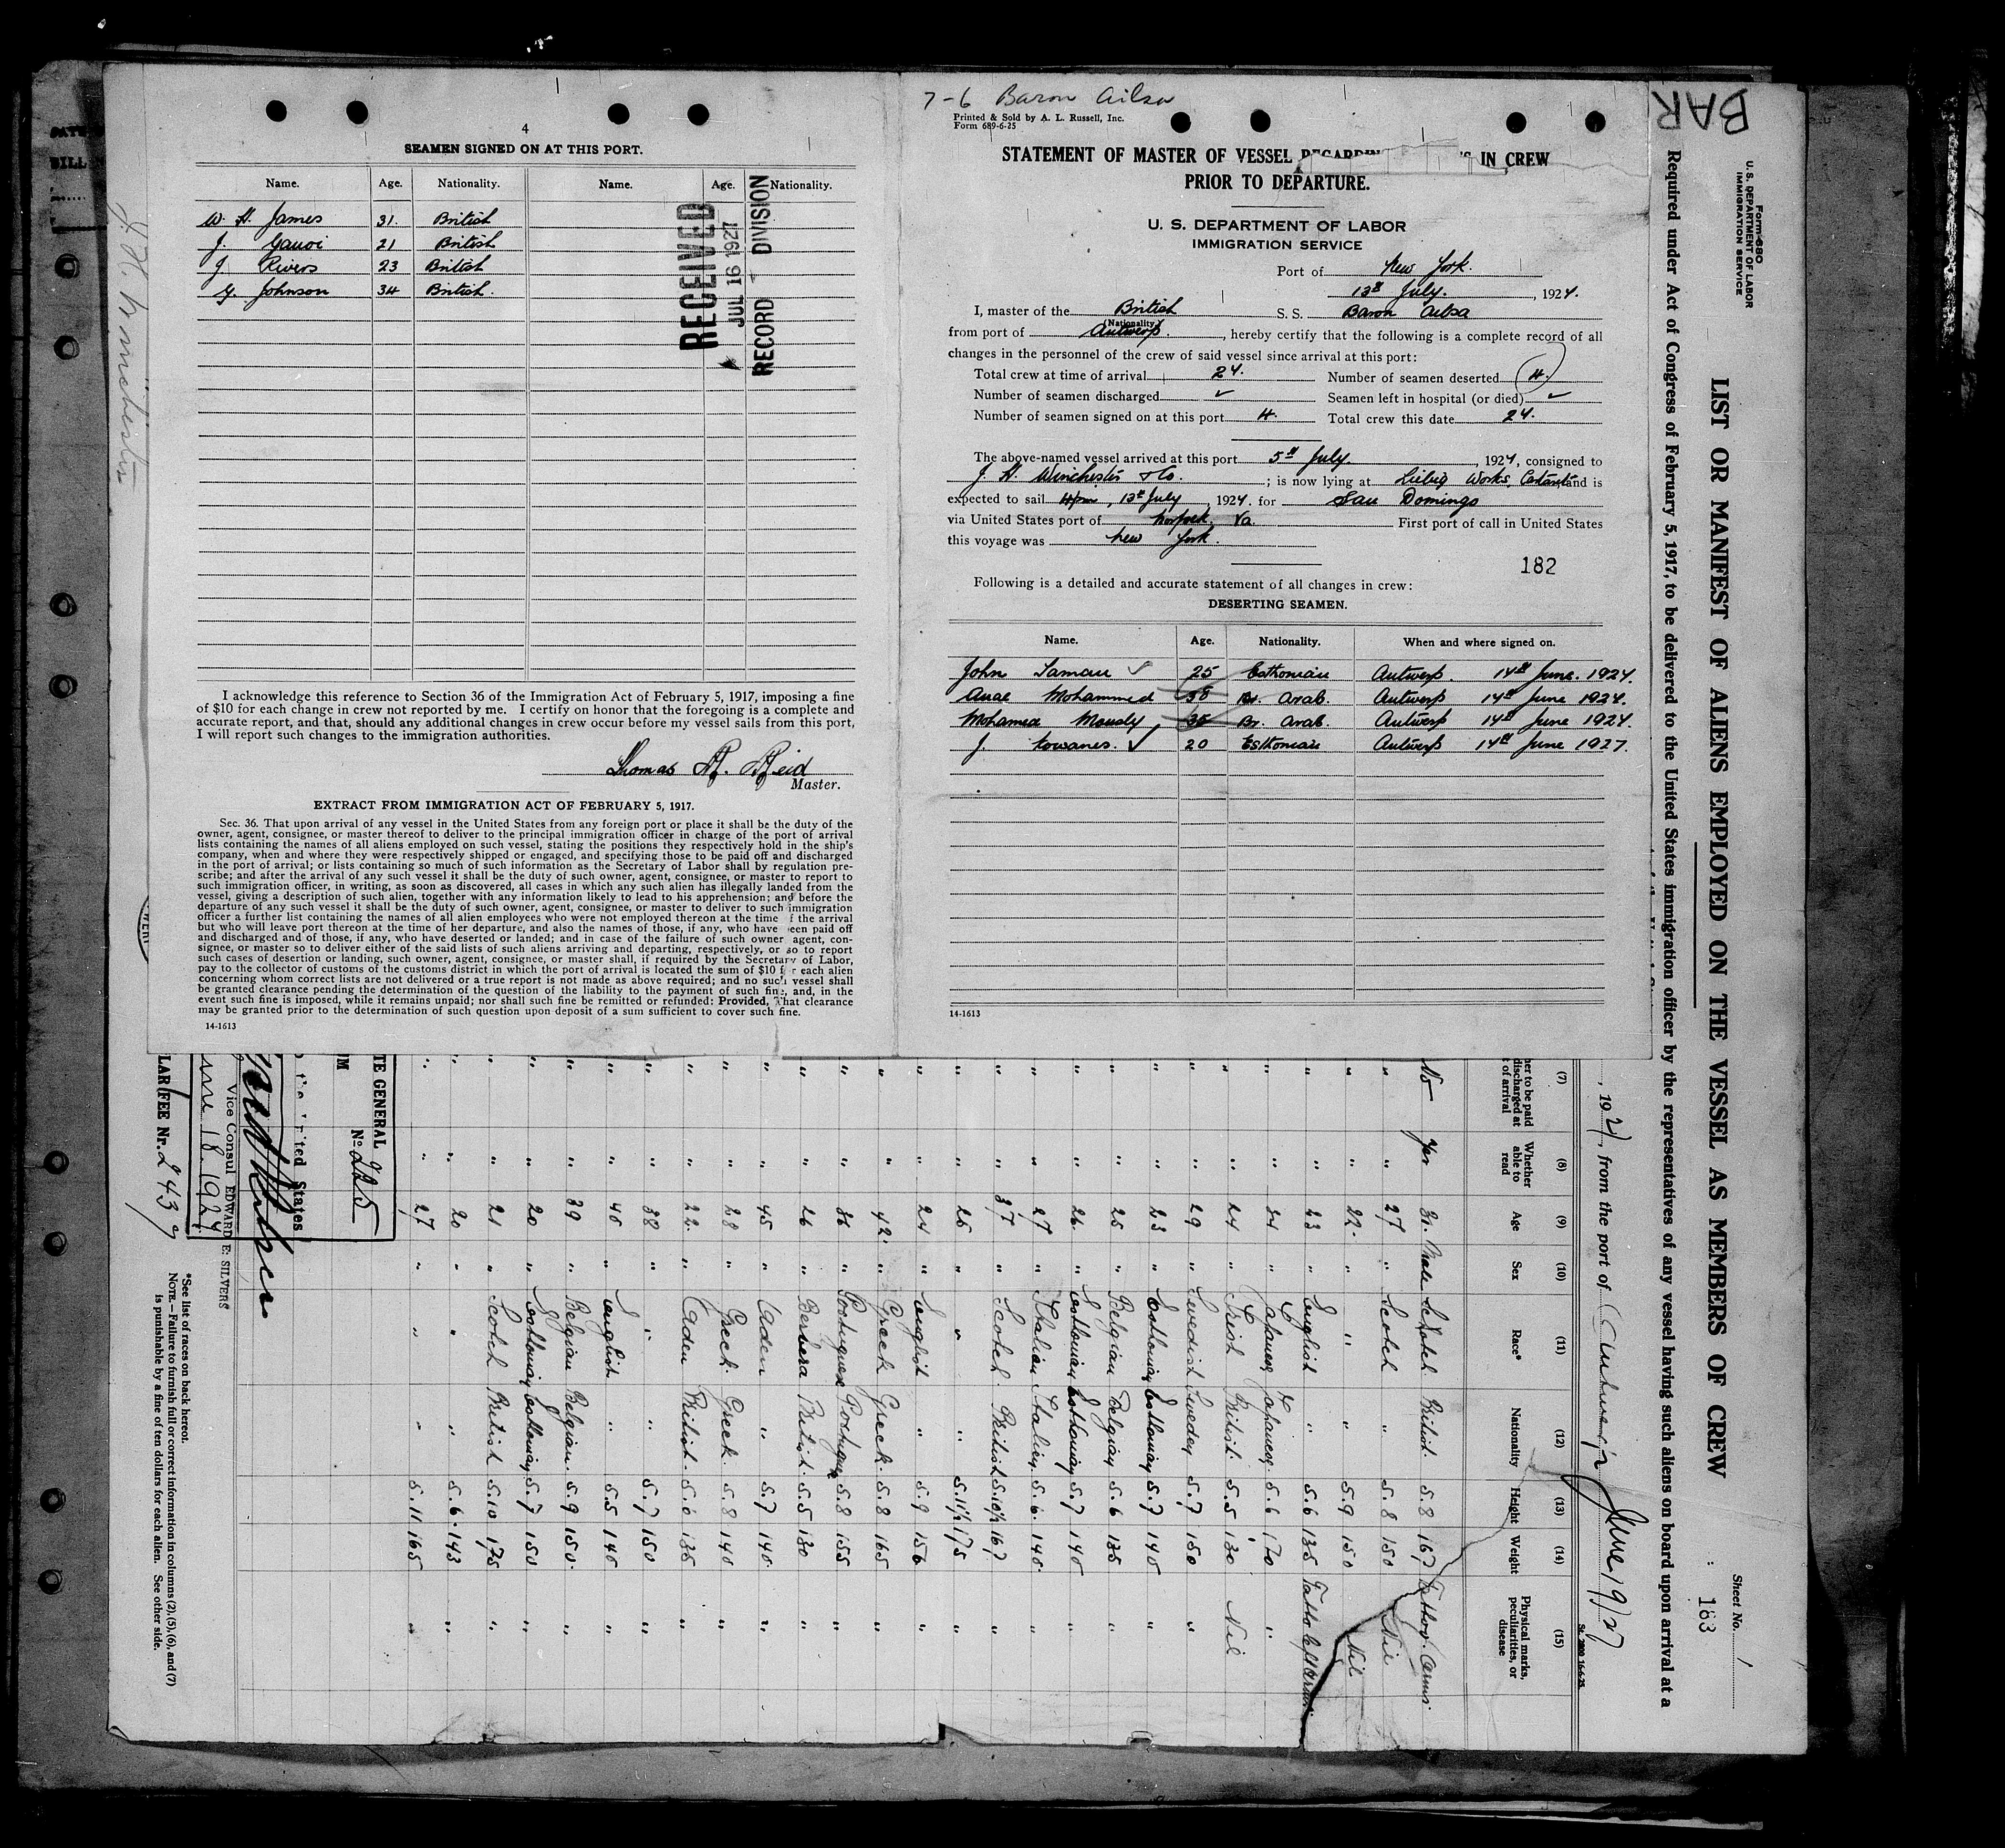 4
SEAMEN SIGNED ON AT THIS PORT.
Name. Age. Nationality. Name. Age. Nationality.
W. H. James 31. British
J. 21 British
J. Rivers 23 British
G. Johnson 34 British.
RECEIVED
JUL 16 1927
RECORD DIVISION
I acknowledge this reference to Section 36 of the Immigration Act of February 5, 1917, imposing a fine
of $10 for each change in crew not reported by me. I certify on honor that the foregoing is a complete and
accurate report, and that, should any additional changes in crew occur before my vessel sails from this port,
I will report such changes to the immigration authorities.
Thomas R. Reid
Master.
EXTRACT FROM IMMIGRATION ACT OF FEBRUARY 5, 1917.
Sec. 36. That upon arrival of any vessel in the United States from any foreign port or place it shall be the duty of the
owner, agent, consignee, or master thereof to deliver to the principal immigration officer in charge of the port of arrival
lists containing the names of all aliens employed on such vessel, stating the positions they respectively hold in the ship's
company, when and where they were respectively shipped or engaged, and specifying those to be paid off and discharged
in the port of arrival; or lists containing so much of such information as the Secretary of Labor shall by regulation pre-
scribe; and after the arrival of any such vessel it shall be the duty of such owner, agent, consignee, or master to report to
such immigration officer, in writing, as soon as discovered, all cases in which any such alien has illegally landed from the
vessel, giving a description of such alien, together with any information likely to lead to his apprehension; and before the
departure of any such vessel it shall be the duty of such owner, agent, consignee, or master to deliver to such immigration
officer a further list containing the names of all alien employees who were not employed thereon at the time f the arrival
but who will leave port thereon at the time of her departure, and also the names of those, if any, who have een paid off
and discharged and of those, if any, who have deserted or landed; and in case of the failure of such owner agent, con-
signee, or master so to deliver either of the said lists of such aliens arriving and departing, respectively, or so to report
such cases of desertion or landing, such owner, agent, consignee, or master shall, if required by the Secretary of Labor,
pay to the collector of customs of the customs district in which the port of arrival is located the sum of $10 f r each alien
concerning whom correct lists are not delivered or a true report is not made as above required; and no such vessel shall
be granted clearance pending the determination of the question of the liability to the payment of such fine, and, in the
event such fine is imposed, while it remains unpaid; nor shall such fine be remitted or refunded: Provided, That clearance
may be granted prior to the determination of such question upon deposit of a sum sufficient to cover such fine.
14-1613
J. H. Winchester
7-6 Baron Ailsa
Printed & Sold by A. L. Russell, Inc.
Form 689-6-25
STATEMENT OF MASTER OF VESSEL REGARDIN IN CREW
PRIOR TO DEPARTURE.
U. S. DEPARTMENT OF LABOR
IMMIGRATION SERVICE
Port of New York.
13th July. , 1927.
I, master of the British S. S. Baron Ailsa
(Nationality)
from port of Antwerp. , hereby certify that the following is a complete record of all
changes in the personnel of the crew of said vessel since arrival at this port:
Total crew at time of arrival 24. Number of seamen deserted 4.
Number of seamen discharged ✓ Seamen left in hospital (or died) ✓
Number of seamen signed on at this port 4. Total crew this date 24.
The above-named vessel arrived at this port 5th July. , 1927, consigned to
J. H. Winchester & Co. ; is now lying at Liebig Works, and is
expected to sail 4pm, 13th July , 1927. for San Domingo
via United States port of Norfolk, Va. First port of call in United States
this voyage was New York.
182
Following is a detailed and accurate statement of all changes in crew:
DESERTING SEAMEN.
Name. Age. Nationality. When and where signed on.
John ✓ 25 Esthonian Antwerp. 14th June. 1927.
Mohammed 38 Br. Arab. Antwerp 14th June 1927.
Mohamed 35 Br. Arab. Antwerp 14th June 1927.
J. ✓ 20 Esthonian Antwerp 14th June 1927.
14-1613
BAR
Form 680
U. S. DEPARTMENT OF LABOR
IMMIGRATION SERVICE
Sheet No. 1
183
LIST OR MANIFEST OF ALIENS EMPLOYED ON THE VESSEL AS MEMBERS OF CREW
Required under Act of Congress of February 5, 1917, to be delivered to the United States immigration officer by the representatives of any vessel having such aliens on board upon arrival at a
, 192 , from the port of Antwerp June 19/27
(7) (8) (9) (10) (11) (12) (13) (14) (15)
her to be paid discharged at t of arrival Whether able to read Age Sex Race* Nationality Height Weight Physical marks, peculiarities, or disease
No Yes 31. Male Scotch British. 5.8 167 Tattoo. Arms
" " 27 " Scotch " 5.8 150 Nil
" " 22. " " " 5.9 150 Nil
" " 23 " English " 5.6 135 Tattoo left arm
" " 34 " Japanese Japanese. 5.6 170 "
" " 24 " Irish British. 5.5 130 Nil
" " 29 " Swedish Sweden 5.7 150 "
" " 23 " Esthonian Esthonian 5.7 140 "
" " 25 " Belgian Belgian 5.6 135 "
" " 26. " Esthonian Esthonian 5.7 140 "
" " 27 " Italian Italian. 5.6. 140. "
" " 37 " Scotch. British 5.10½ 167 "
" " 25 " " " 5.11½ 175 "
" " 24 " English " 5.9 156 "
" " 42. " Greek Greek. 5.8 165 "
" " 36 " Portuguese Portuguese 5.8 155 "
" " 26 " Berbera British. 5.5 130 "
" " 45 " Aden " 5.7 140. "
" " 28 " Greek. Greek. 5.8 140 "
" " 22. " Aden British 5.6 135 "
" " 38 " " " 5.7 150 "
" " 40 " English " 5.5 140 "
" " 39 " Belgian Belgian. 5.9 150. "
" " 20 " Esthonian Esthonian 5.7 150 "
" " 21 " Scotch British 5.10 175 "
" " 20 " " " 5.6. 143 "
" " 27 " " " 5.11 165 "
TE GENERAL
No 225
ited States
Vice Consul EDWARD E. SILVERS
18 1927
LAR FEE Nr. 2437
*See list of races on back hereof.
NOTE.—Failure to furnish full or correct information in columns (2), (5), (6), and (7)
is punishable by a fine of ten dollars for each alien. See other side.